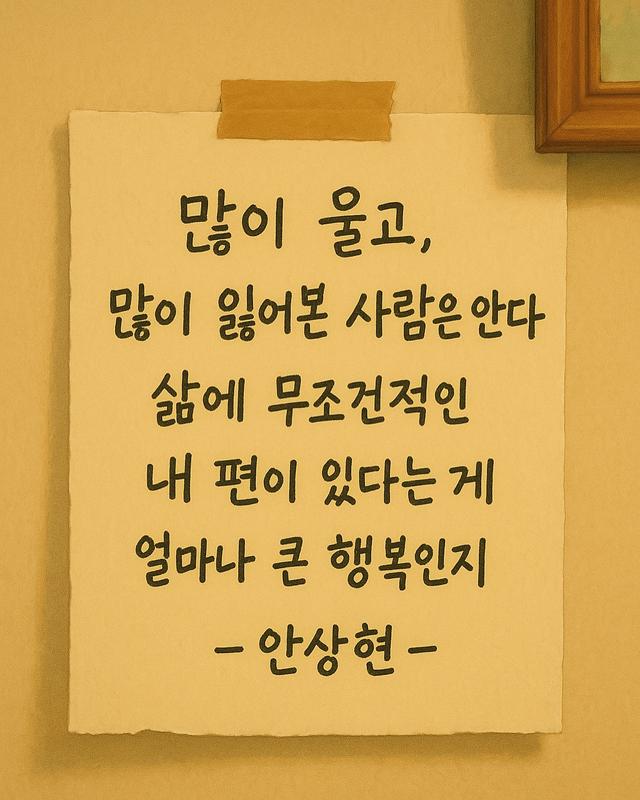 많이 울고,
많이 잃어본 사람은 안다
삶에 무조건적인
내 편이 있다는 게
얼마나 큰 행복인지
– 안상현 –